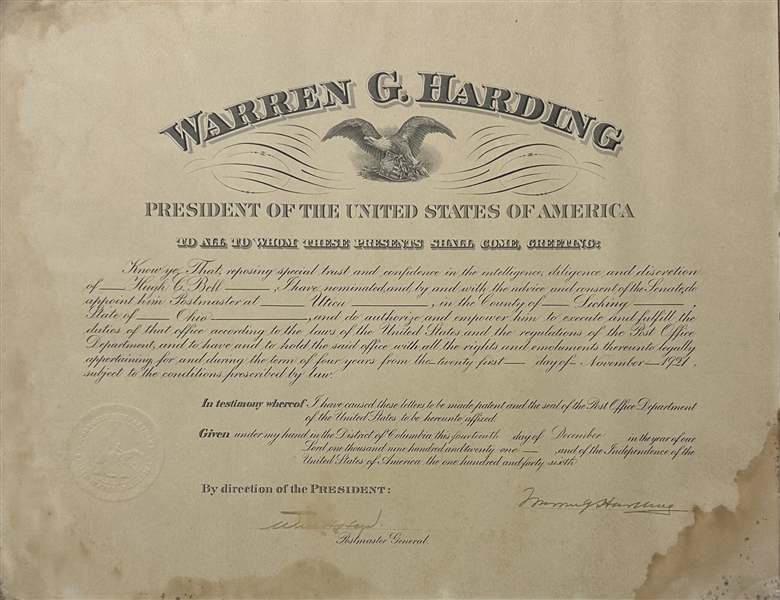 WARREN G. HARDING
PRESIDENT OF THE UNITED STATES OF AMERICA
TO ALL TO WHOM THESE PRESENTS SHALL COME, GREETING:
Know ye That, reposing special trust and confidence in the intelligence, diligence and discretion
of Hugh C. Bell, I have nominated, and, by and with the advice and consent of the Senate, do
appoint him Postmaster at Utica, in the County of Licking,
State of Ohio, and do authorize and empower him to execute and fulfill the
duties of that office according to the laws of the United States and the regulations of the Post Office
Department, and to have and to hold the said office with all the rights and emoluments thereunto legally
appertaining, for and during the term of four years from the twenty first day of November 1921,
subject to the conditions prescribed by law.
In testimony whereof I have caused these letters to be made patent and the seal of the Post Office Department
of the United States to be hereunto affixed.
Given under my hand in the District of Columbia this fourteenth day of December in the year of our
Lord one thousand nine hundred and twenty one, and of the Independence of the
United States of America the one hundred and forty sixth.
By direction of the PRESIDENT:
Warren G Harding
Postmaster General.